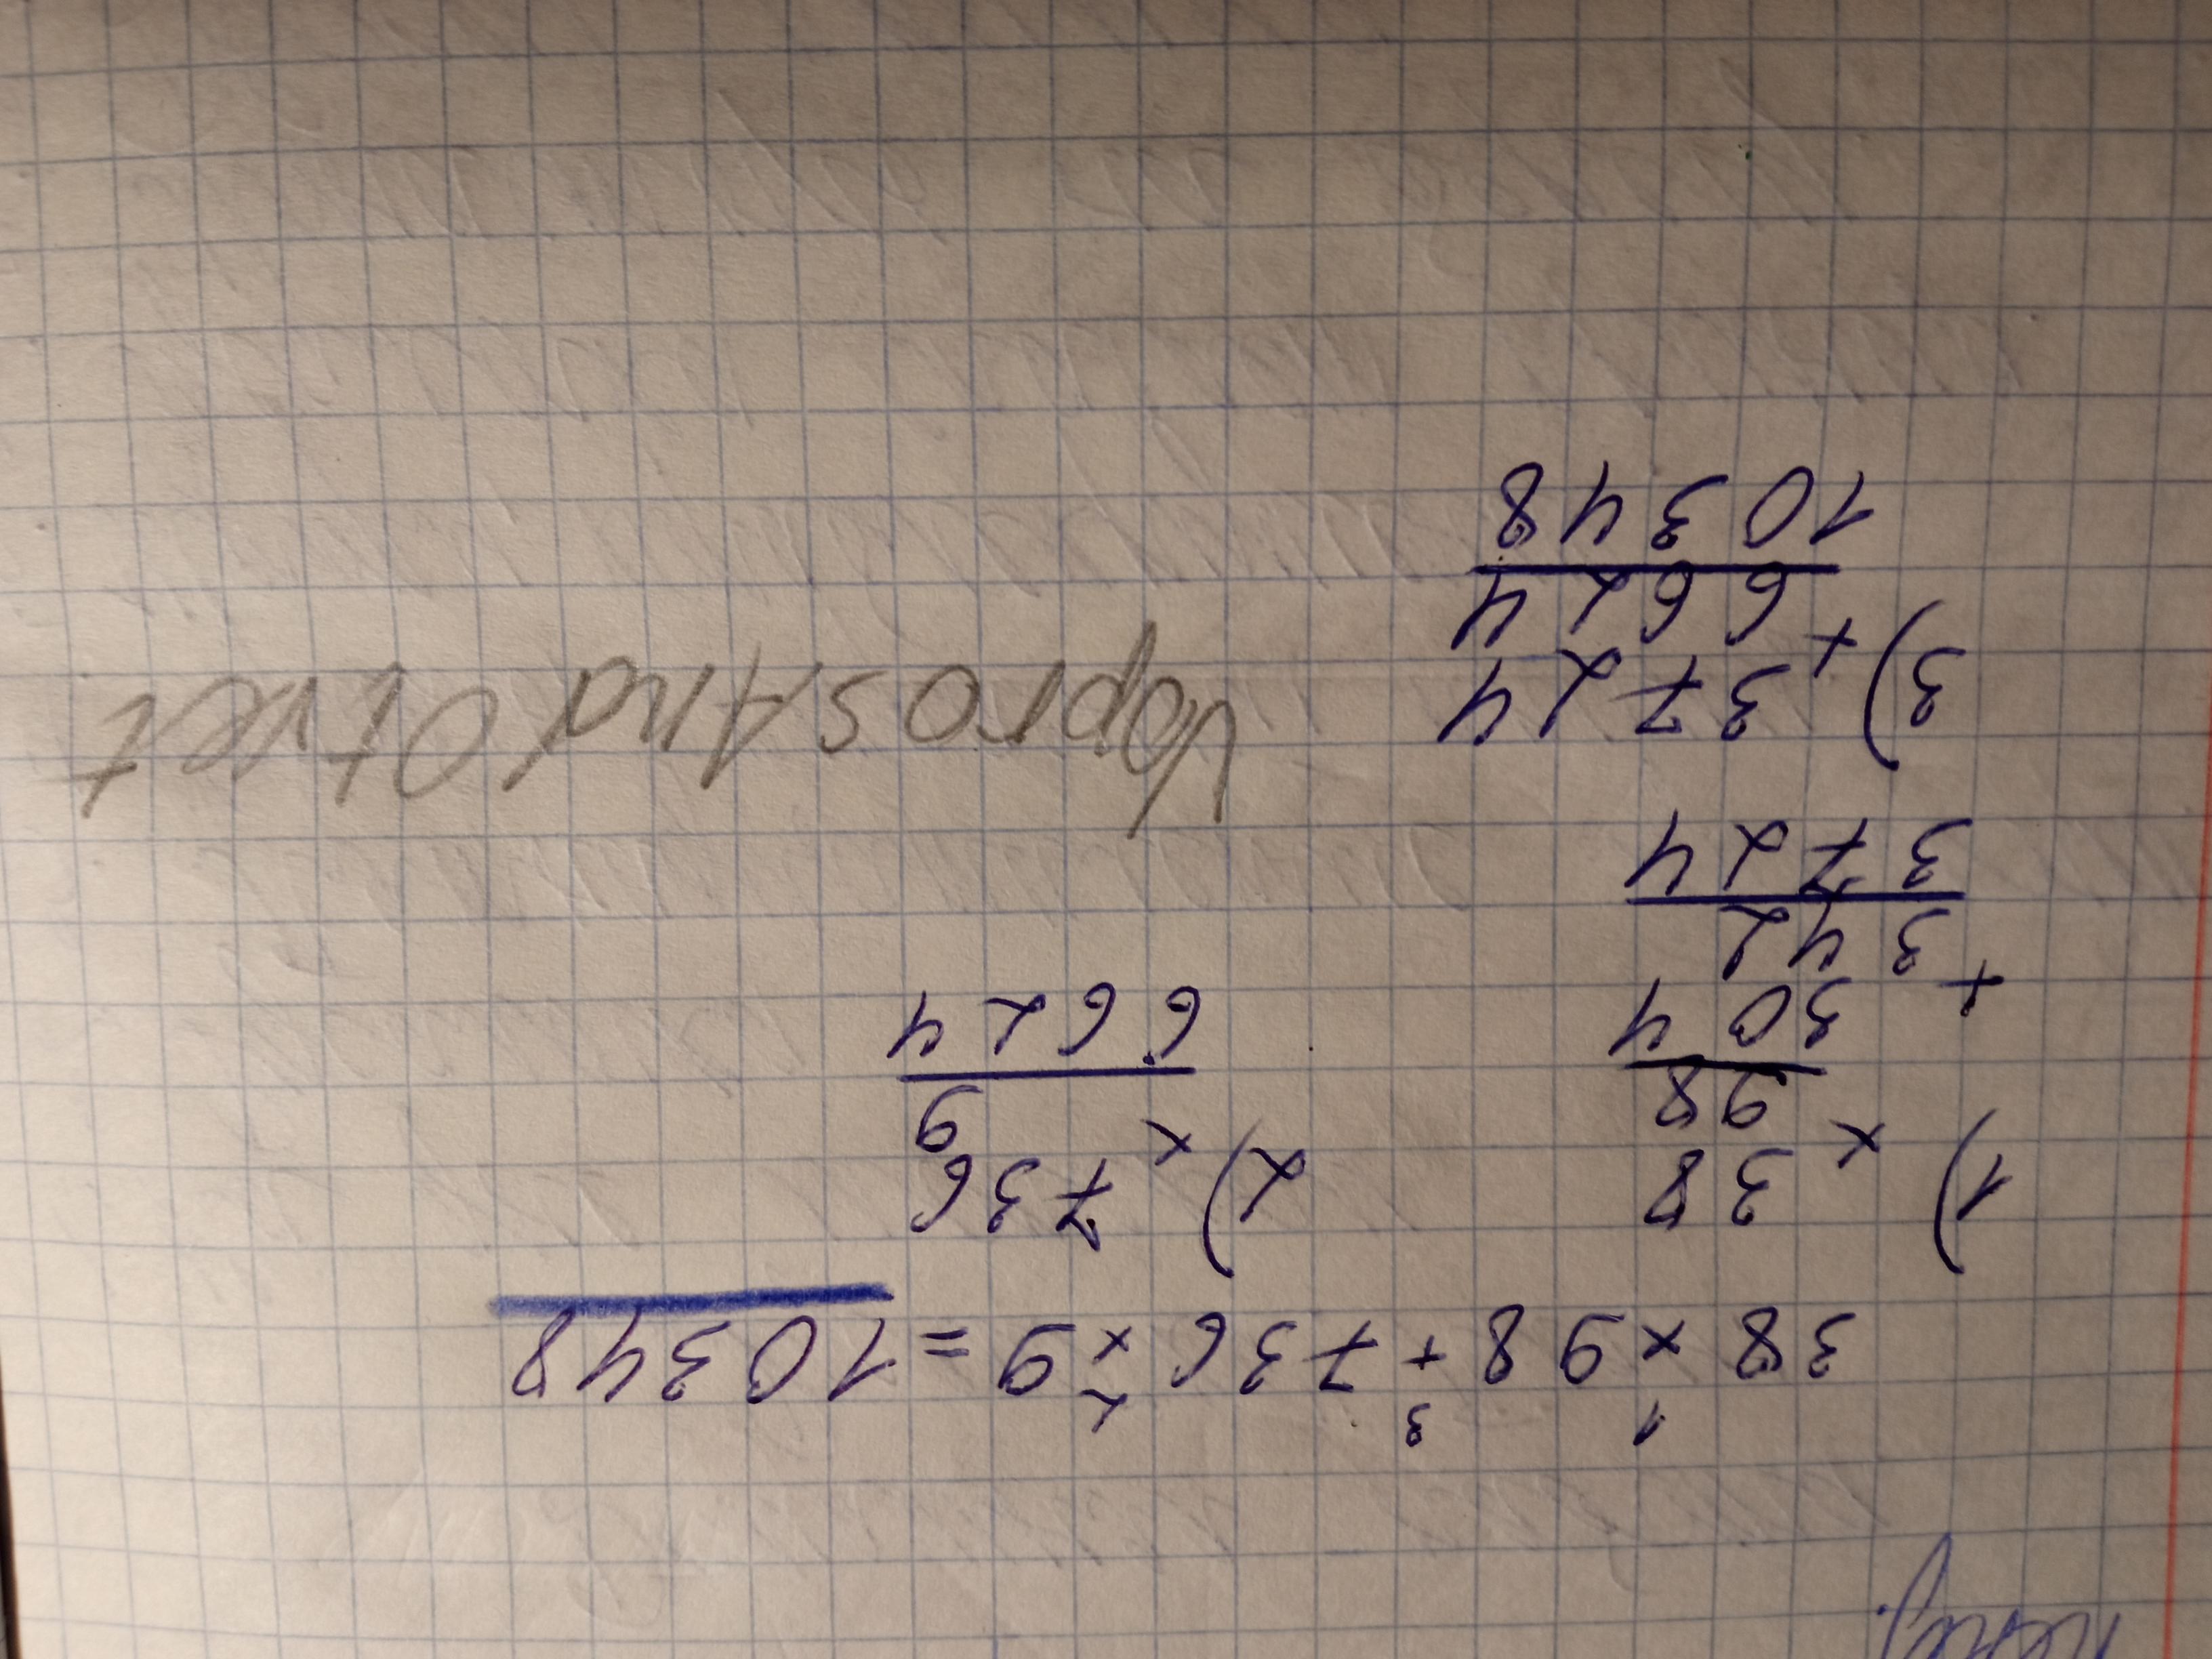 1 3 2
38 × 98 + 736 × 9 = 10348
1) × 38
98
304
+ 342
3724
2) × 736
9
6624
3) + 3724
6624
10348
VoprosAndOtvet